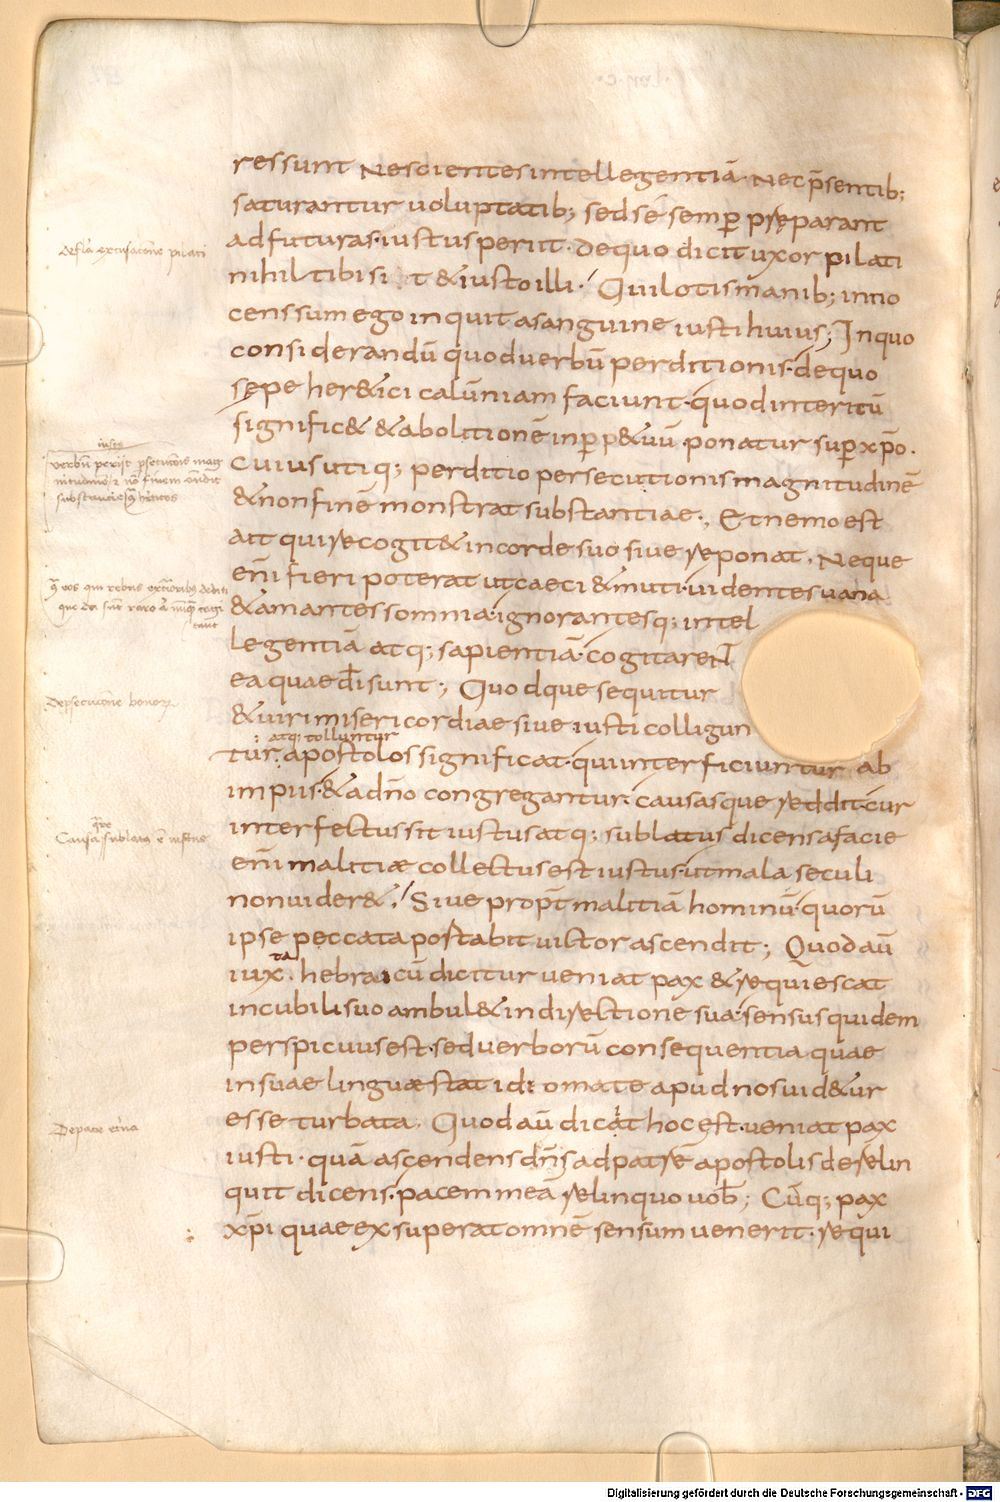 ressunt Nescientes intellegentiā. Nec p̄sentib;
saturantur uoluptatib; sed sē semꝑ pręparant
ad futuras. iustus periit. de quo dicit uxor pilati
nihil tibi sit & iusto illi. Qui lotis manib; inno
cens sum ego inquit a sanguine iusti huius; In quo
considerandū quod uerbū perditionis. de quo
sepe her&ici calūniam faciunt. quod interitū
signific& & abolitionē in perp&uū ponatur suꝑ xp̄o.
Cuius utiq; perditio persecutionis magnitudinē
& non finē monstrat substantiae; Et nemo est
ait qui recogit& in corde suo siue reponat. Neque
eni fieri poterat ut caeci & muti. uidentes uana
& amantes somnia. ignorantesq; intel
legentiā atq; sapientiā. cogitarent
ea quae dī sunt; Quodque sequitur
& uiri misericordiae siue iusti colligun
atq; tolluntur
tur. apostolos significat. qui interficiuntur ab
impiis. & ad dn̄o congregantur. causasque reddit. cur
interfectus sit iustus atq; sublatus dicens a facie
eni malitiæ collectus est iustus. ut mala seculi
non uider&. Siue propt̄ malitiā hominū. quorū
ipse peccata postabit uictor ascendit; Quod aū
iuxta hebraicū dicitur ueniat pax & requiescat
in cubili suo ambul& in directione sua. sensus quidem
perspicuus est. sed uerborū consequentia quae
in suae linguæ stat idiomate apud nos uid&ur
esse turbata. Quod aū dicit hoc est. ueniat pax
iusti. quā ascendens dn̄s ad patrē apostolis derelin
quit dicens. pacem meā relinquo uob̄; Cūq; pax
xp̄i quae exsuperat omnē sensum uenerit. requi
Depace
Digitalisierung gefördert durch die Deutsche Forschungsgemeinschaft - DFG